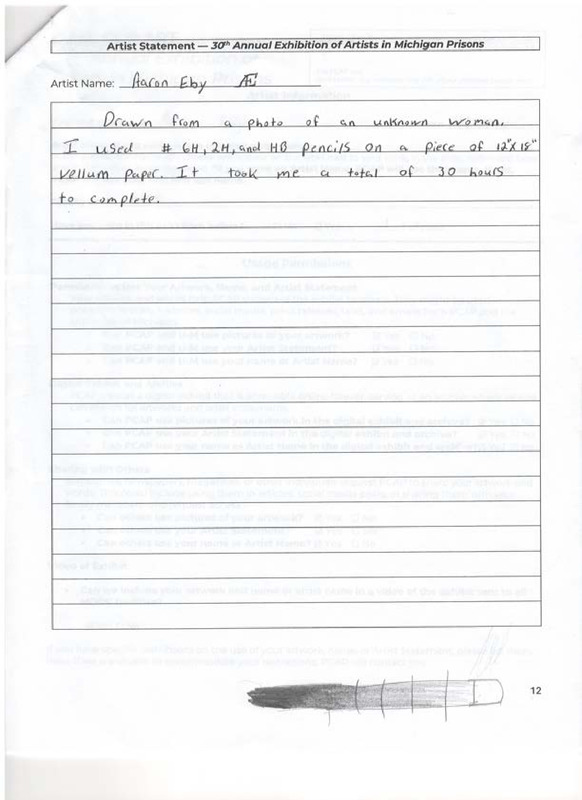 Artist Statement — 30th Annual Exhibition of Artists in Michigan Prisons
Artist Name: Aaron Eby Æ
Drawn from a photo of an unknown woman.
I used # 6H, 2H, and HB pencils on a piece of 12"x18"
vellum paper. It took me a total of 30 hours
to complete.
12